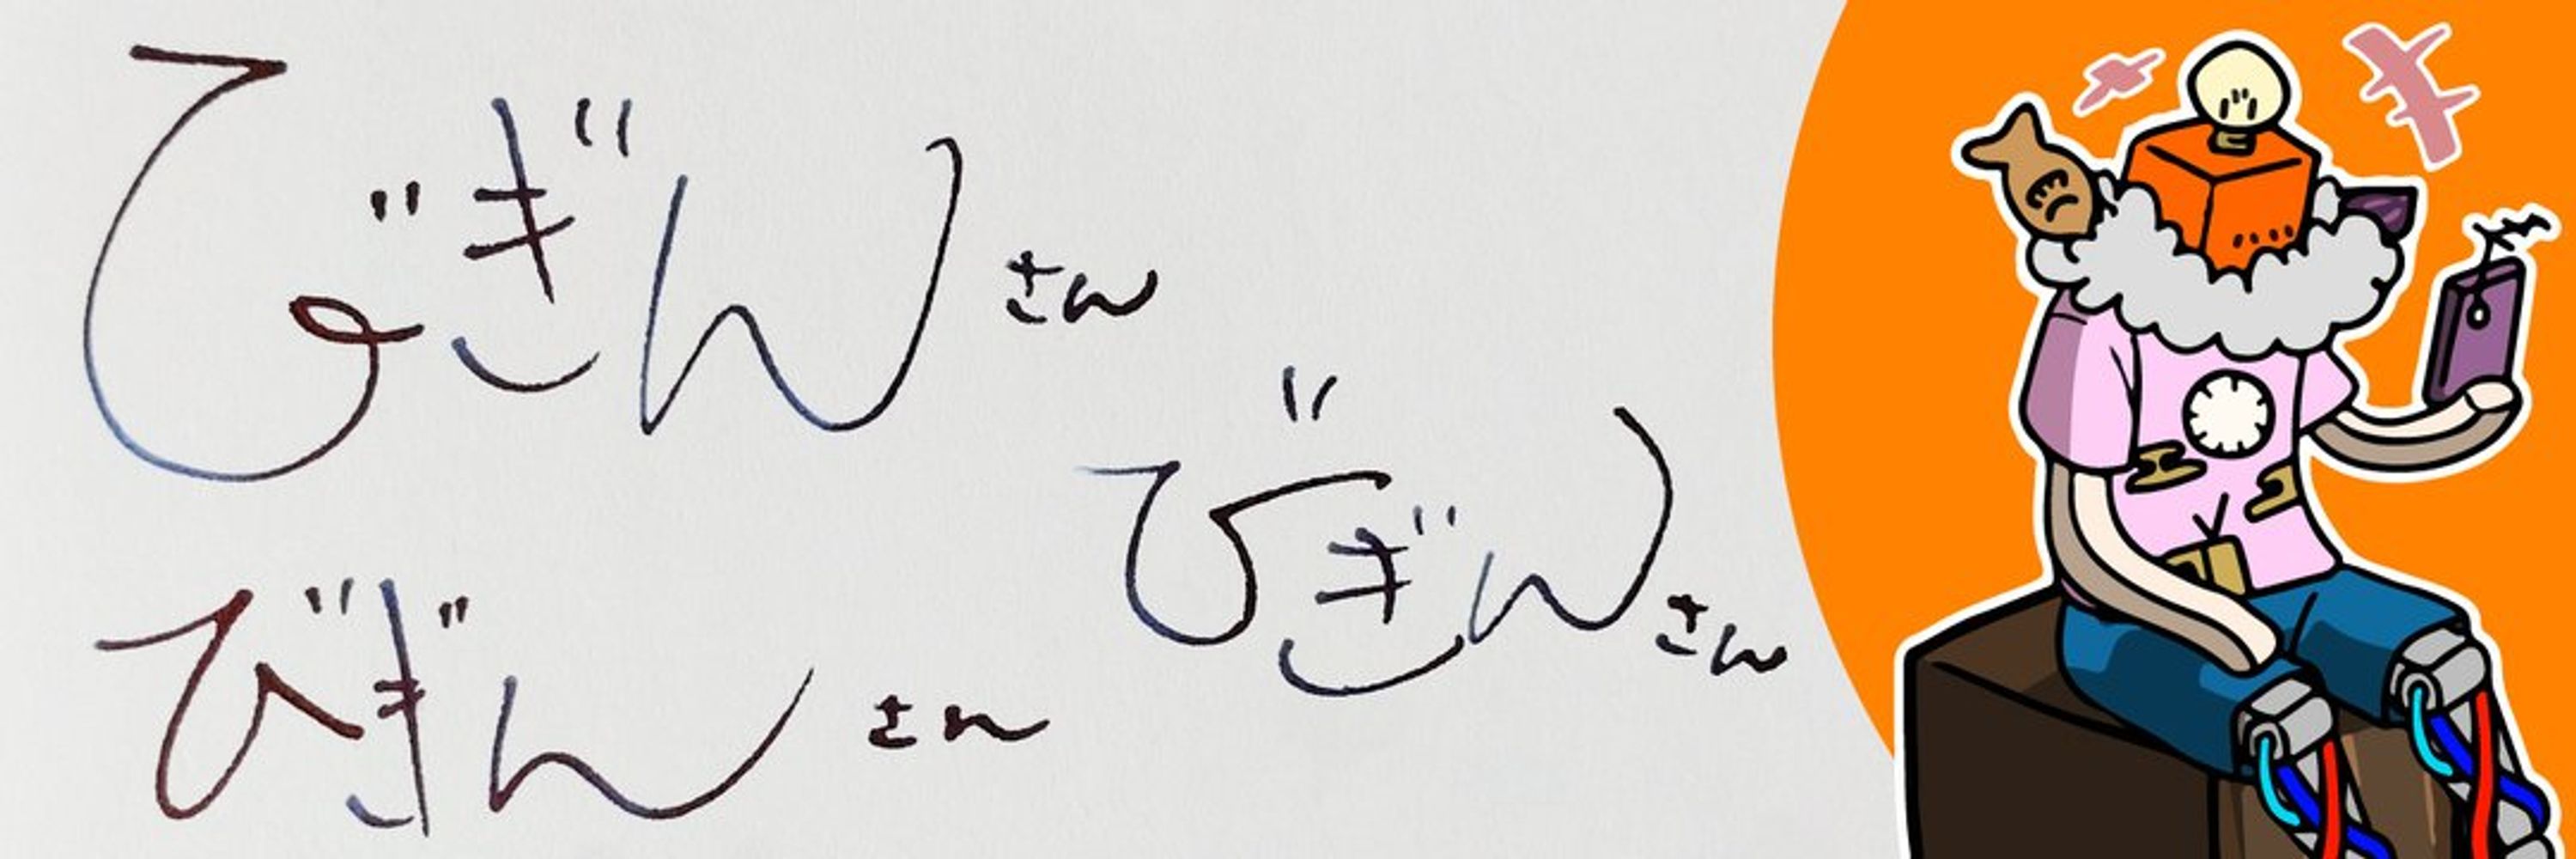 びぎんさん
びぎんさん
びぎんさん